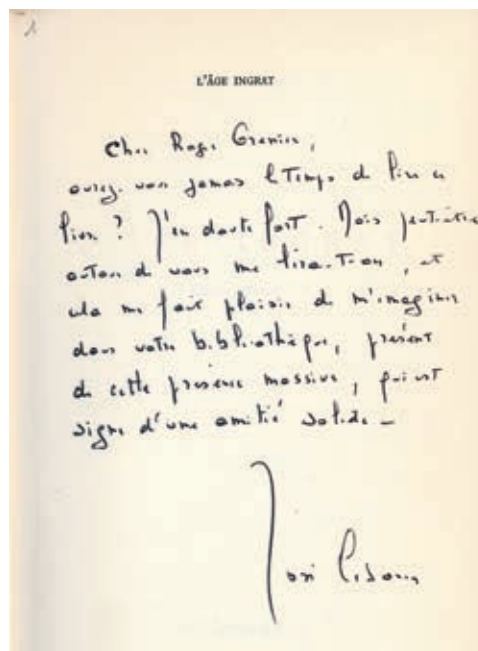 1
L'ÂGE INGRAT
Cher Roger Grenier,
aurez-vous jamais le Temps de lire ce
livre ? J'en doute fort. Mais peut-être
autour de vous me lira-t-on, et
cela me fait plaisir de m'imaginer
dans votre bibliothèque, présent
de cette présence massive, qui est
signe d'une amitié solide –
José Cabanis